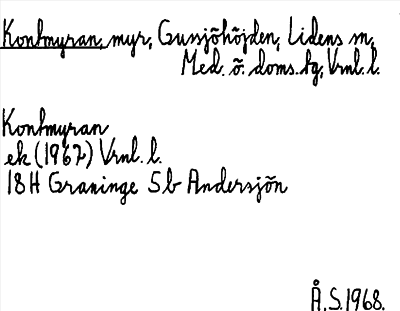 Kontmyran, myr, Gussjöhöjden, Lidens sn,
Med. ö. doms.bg, Vrnl. l.
Kontmyran
ek (1967) Vrnl. l.
18H Graninge 5b Andersjön
Å.S.1968.